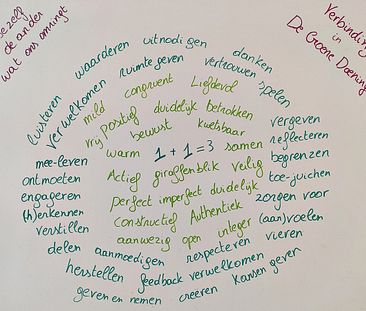 ezelf
de ander
wat ons omringt
Verbinding
in
De Groene Doening
waarderen uitnodigen danken
verwelkomen ruimte geven vertrouwen spelen
luisteren mild congruent Liefdevol
vrij Positief duidelijk betrokken vergeven
bewust kwetsbaar reflecteren
warm 1+1=3 samen begrenzen
mee-leven Actief giraffenblik veilig toe-juichen
ontmoeten perfect imperfect duidelijk zorgen voor
engageren constructief Authentiek (aan)voelen
(h)erkennen aanwezig open integer
verstillen
delen aanmoedigen respecteren vieren
herstellen feedback verwelkomen kansen geven
geven en nemen creëren